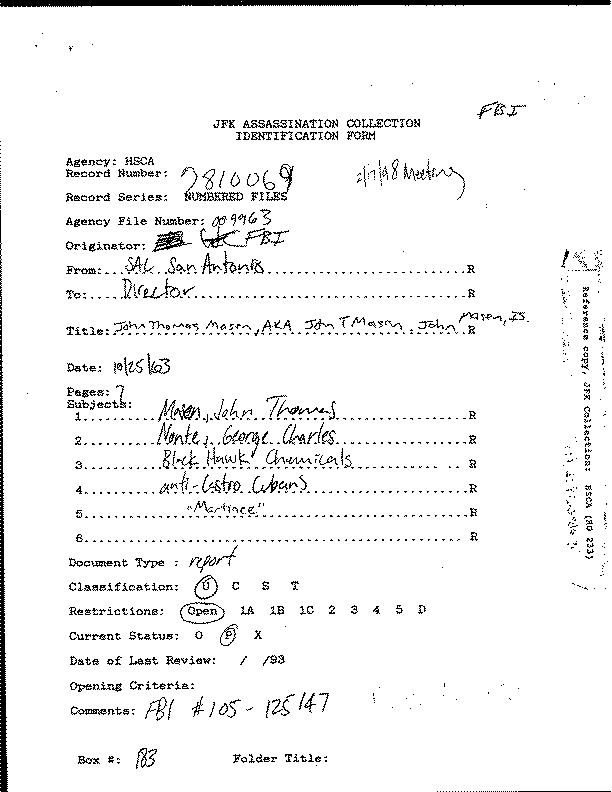 FBI
JFK ASSASSINATION COLLECTION
IDENTIFICATION FORM
Agency: HSCA
Record Number: 2810069
2/17/98 Meeting
Record Series: NUMBERED FILES
Agency File Number: 009963
Originator: FBI
From:....SAC San Antonio....R
To:.....Director....R
Title: John Thomas Masen, AKA John T Masen, John Masen, IS. R
Date: 10/25/63
Pages: 7
Subjects:
1......Masen, John Thomas......R
2......Nonte, George Charles......R
3......Black Hawk Chemicals......R
4......anti-Castro Cubans......R
5......"Martinee"......R
6......R
Document Type : report
Classification: U C S T
Restrictions: Open 1A 1B 1C 2 3 4 5 D
Current Status: O P X
Date of Last Review: / /93
Opening Criteria:
Comments: FBI #105-125147
Box #: 183 Folder Title:
Reference copy, JFK Collection: HSCA (RG 233)